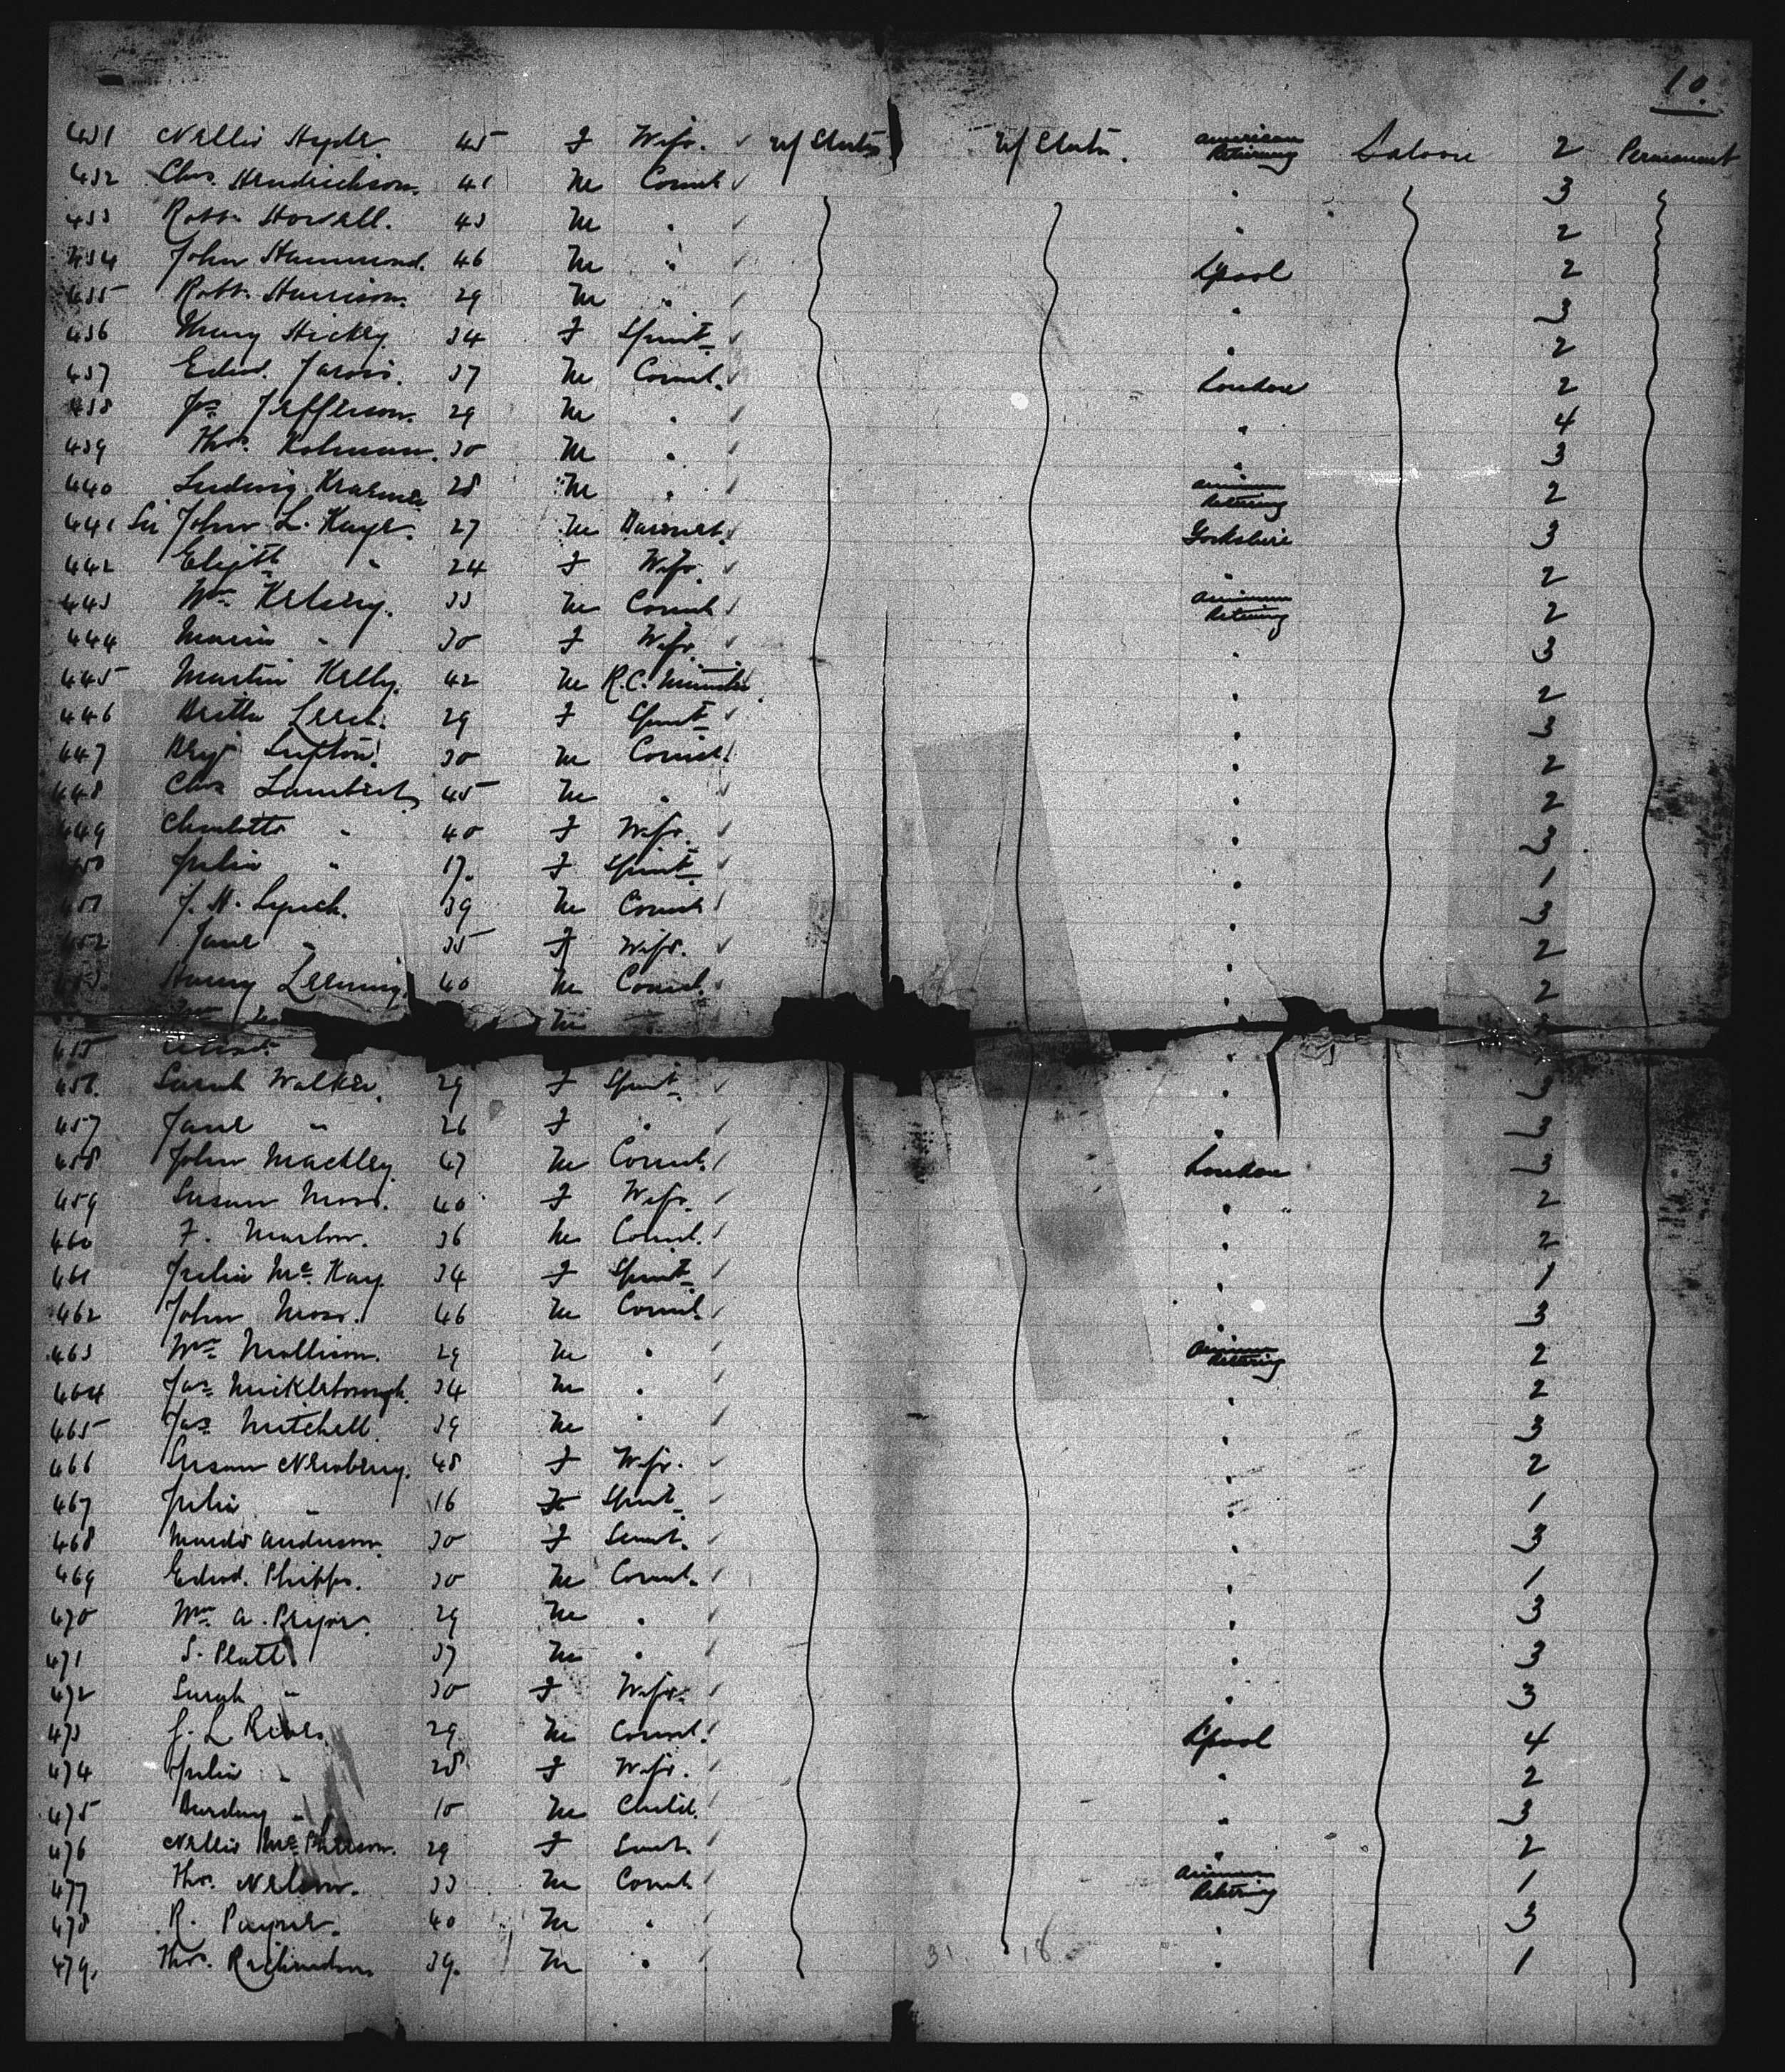 10.
431 Nellie Hyde. 45 F Wife. U/States U/States. American Returning Saloon 2 Permanent
432 Chas. Hendrickson. 41 M Comcl 3
433 Robt. Howell. 43 M " " 2
434 John Hammond. 46 M " Lpool 2
435 Robt. Harrison. 29 M " " 3
436 Mary Hickey 34 F Spinst " 2
437 Edwd. Jarvis. 37 M Comcl. London 2
438 Jos. Jefferson. 29 M " " 4
439 Thos. Kolman. 30 M " " 3
440 Ludwig Kraemer 28 M " American Returning 2
441 Sir John L. Kaye. 27 M Baronet. Yorkshire 3
442 Elizth " 24 F Wife. " 2
443 Wm. Kelsey. 33 M Comcl American Returning 2
444 Maria " 30 F Wife. " 3
445 Martin Kelly. 42 M R.C. Minister. " 2
446 29 F Spinst " 3
447 Benj. Lupton. 30 M Comcl. " 2
448 Chas Lambert 45 M " " 2
449 Charlotte " 40 F Wife. " 3
450 Julia " 17. F Spinst. " 1
451 J. H. Lynch. 39 M Comcl " 3
452 Jane " 35 F Wife. " 2
453. Harry Leeming. 40 M Comcl. " 2
M "
455 "
456. Sarah Walker. 29 F Spinst " 3
457 Jane " 26 F " " 3
458 John Mackley 47 M Comcl. London 3
459 Susan Moss. 40 F Wife. " 2
460 F. Marlow. 36 M Comcl. " 2
461 Julia Mc. Kay 34 F Spinst. " 1
462 John Moss. 46 M Comcl. " 3
463 Wm. Mollison. 29 M " American Returning 2
464 Jas. Mickleborough. 34 M " " 2
465 Jas. Mitchell. 39 M " " 3
466 Susan Newberry. 48 F Wife. " 2
467 Julia " 16 F Spinst. " 1
468 Anderson. 30 F Servt. " 3
469 Edwd. Phipps. 30 M Comcl. " 1
470 Wm. A. Pryor. 29 M " " 3
471 S. Platt 37 M " " 3
472 Sarah " 30 F Wife. " 3
473 G. L. Rives. 29. M Comcl. Lpool 4
474 Julia " 28 F Wife. " 2
475 " 10 M Child. " 3
476 Nellie McPherson. 29 F Servt. " 2
477 Thos. Nelson. 33 M Comcl. American Returning 1
478 R. Payne. 40 M " " 3
479. Thos. Richardson 39. M " " 1